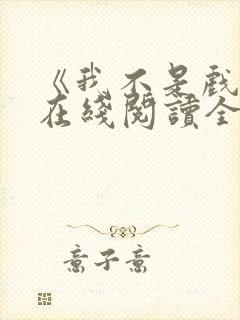 《我不是戲
在綫閱讀全
意子意